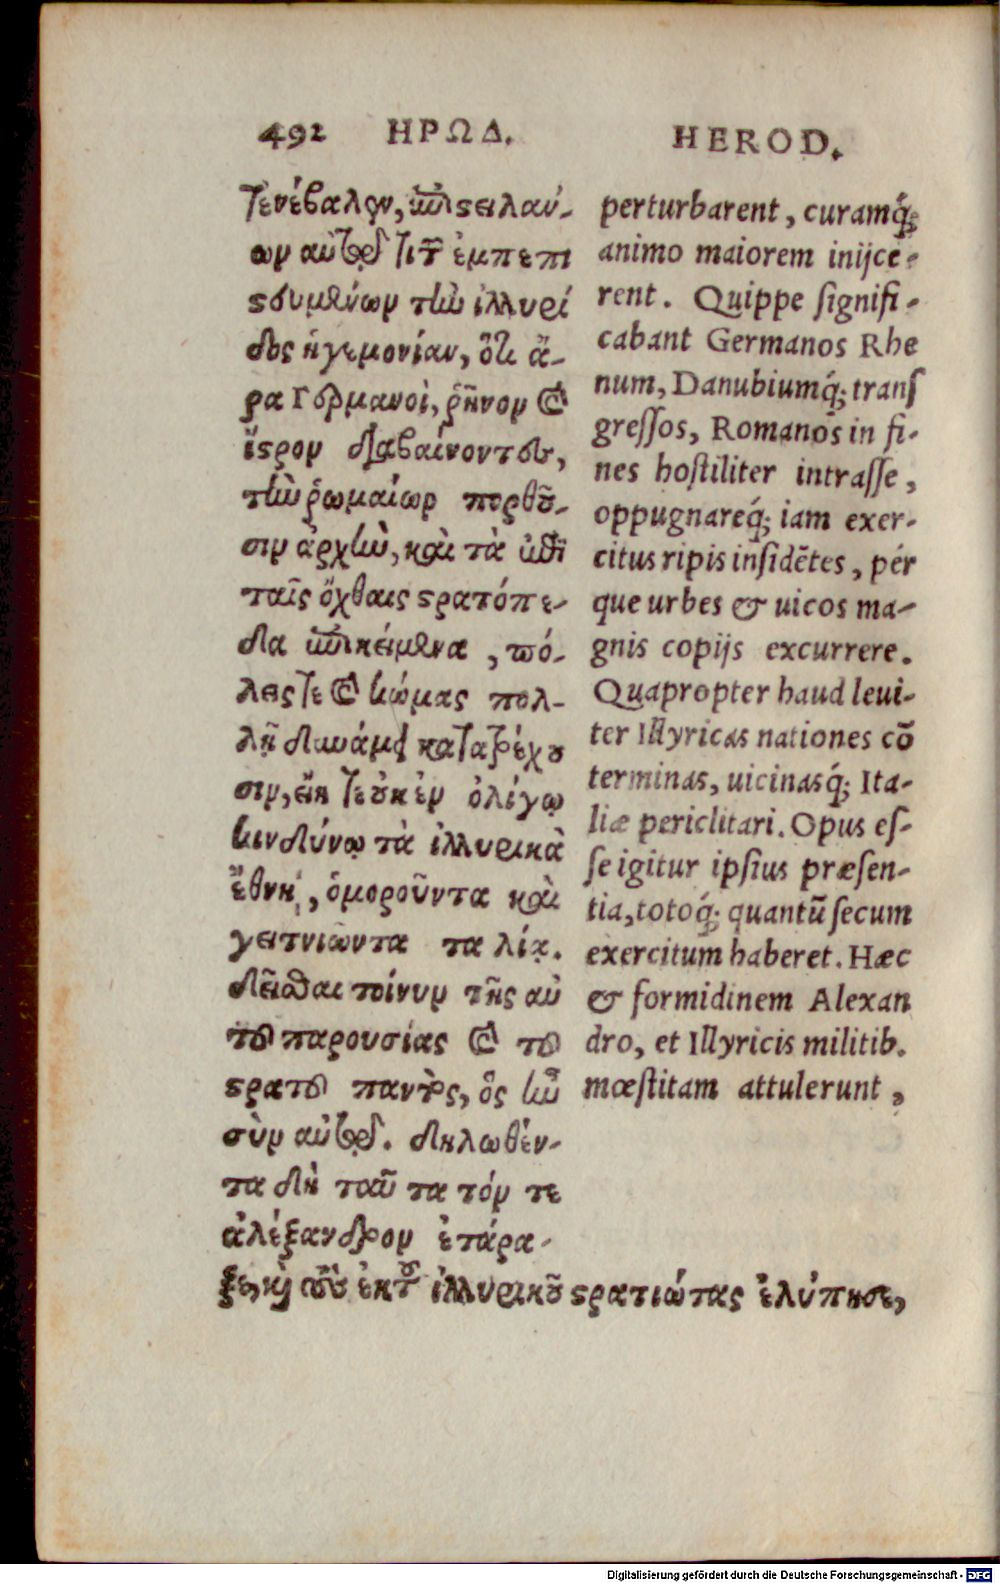 492 ΗΡΩΔ. HEROD.
τενέβαλον, ἐπιστειλάν-
των αὐτῷ τῶν ἐμπεπι
στευμένων τὴν ἰλλυρί
δος ἡγεμονίαν, ὅτι ἄ-
ρα Γερμανοὶ, ῥῆνον καὶ
ἴστρον διαβαίνοντες,
τὴν ῥωμαίων πορθοῦ-
σιν ἀρχὴν, καὶ τὰ ἐπὶ
ταῖς ὄχθαις στρατόπε-
δα ἐπικείμενα, πό-
λεις τε καὶ κώμας πολ-
λῇ δυνάμει κατατρέχου
σιν, εἴη τε οὐκ ἐν ὀλίγῳ
κινδύνῳ τὰ ἰλλυρικὰ
ἔθνη, ὁμοροῦντα καὶ
γειτνιῶντα τα λίᾳ.
δεῖσθαι τοίνυν τῆς αὐ
τοῦ παρουσίας καὶ τοῦ
στρατοῦ παντὸς, ὃς ἦν
σὺν αὐτῷ. δηλωθέν-
τα δὴ ταῦτα τόν τε
ἀλέξανδρον ἐτάρα-
ξε, καὶ τοὺς ἐκ τοῦ ἰλλυρικοῦ στρατιώτας ἐλύπησε,
perturbarent, curamq́;
animo maiorem inijce-
rent. Quippe signifi-
cabant Germanos Rhe
num, Danubiumq́; trans
gressos, Romanos in fi-
nes hostiliter intrasse,
oppugnareq́; iam exer-
citus ripis insidẽtes, pér
que urbes & uicos ma-
gnis copijs excurrere.
Quapropter haud leui-
ter Illyricas nationes cõ
terminas, uicinasq́; Ita-
liæ periclitari. Opus es-
se igitur ipsius præsen-
tia, totoq́; quantũ secum
exercitum haberet. Hæc
& formidinem Alexan
dro, et Illyricis militib.
mœstitam attulerunt,
Digitalisierung gefördert durch die Deutsche Forschungsgemeinschaft - DFG